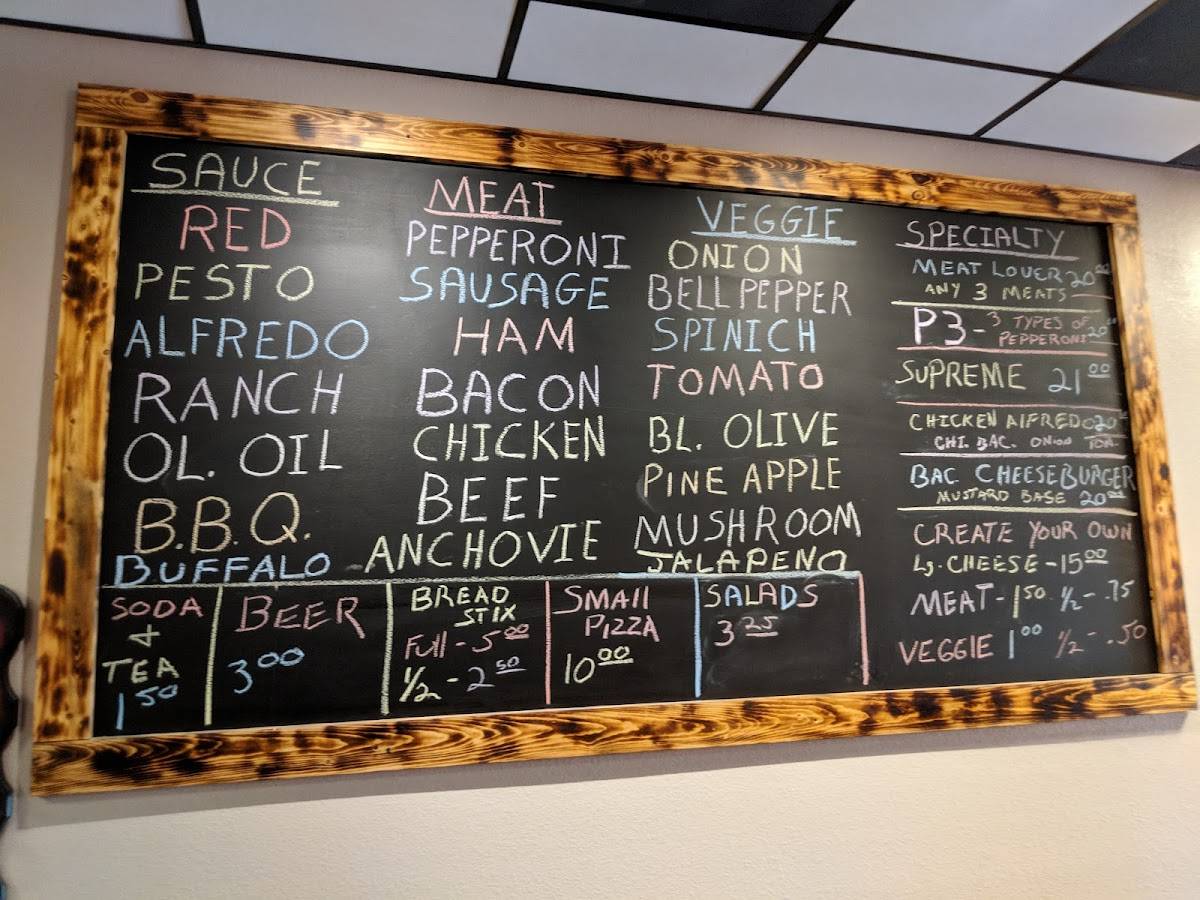 SAUCE
RED
PESTO
ALFREDO
RANCH
OL. OIL
B.B.Q.
BUFFALO
MEAT
PEPPERONI
SAUSAGE
HAM
BACON
CHICKEN
BEEF
ANCHOVIE
VEGGIE
ONION
BELL PEPPER
SPINICH
TOMATO
BL. OLIVE
PINE APPLE
MUSHROOM
JALAPENO
SPECIALTY
MEAT LOVER 20 00
ANY 3 MEATS
P3 - 3 TYPES OF
PEPPERONI 20 00
SUPREME 21 00
CHICKEN AlFREDO 20
CHI. BAC. ONION TOM.
BAC CHEESEBURGER
MUSTARD BASE 20 00
CREATE YOUR OWN
Lg. CHEESE - 15 00
MEAT - 1 50 1/2 - .75
VEGGIE 1 00 1/2 - .50
SODA
&
TEA
1 50
BEER
3 00
BREAD
STIX
Full - 5 00
1/2 - 2 50
SMAll
PIZZA
10 00
SALADS
3 25